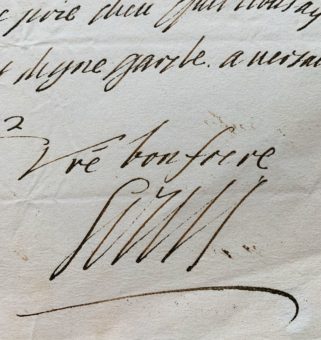 prie dieu qu'il vous ay
digne garde. a versai
2
Vrē bon frere
Louis